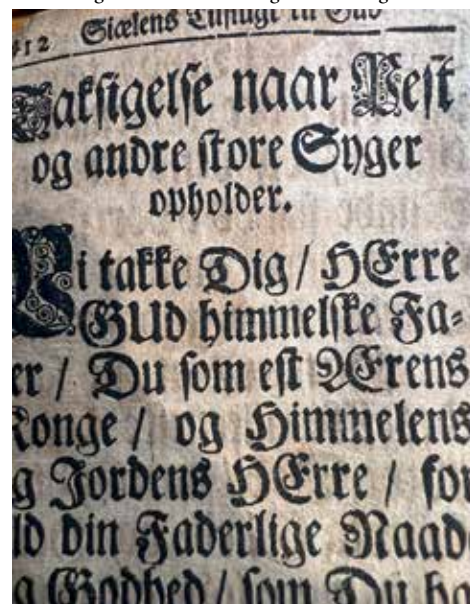 412 Siælens Tilflugt til Gud
Taksigelse naar Pest
og andre store Syger
opholder.
Vi takke Dig / HErre
GUd himmelske Fa-
er / Du som est Ærens
Konge / og Himmelens
g Jordens HErre / for
ld din Faderlige Naad
g Godhed / som Du ha